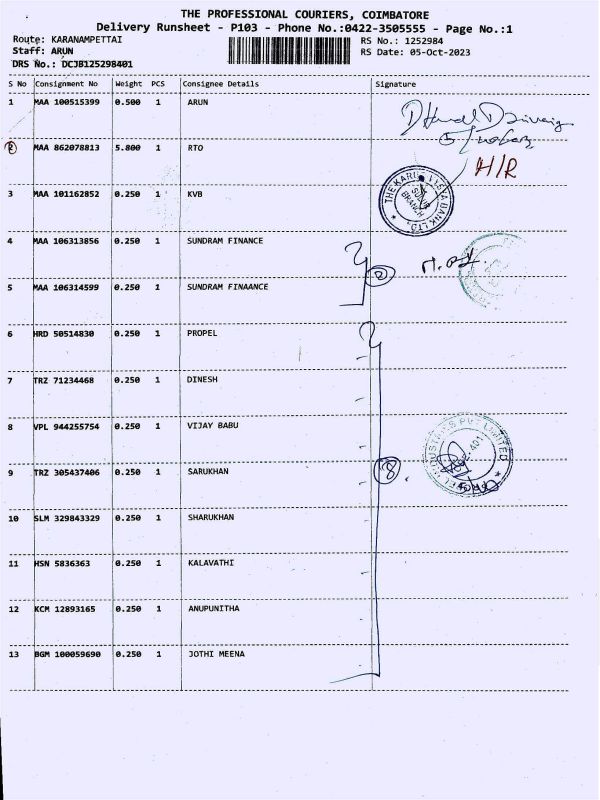 THE PROFESSIONAL COURIERS, COIMBATORE
Delivery Runsheet - P103 - Phone No.:0422-3505555 - Page No.:1
Route: KARANAMPETTAI RS No.: 1252984
Staff: ARUN RS Date: 05-Oct-2023
DRS No.: DCJB125298401
S No Consignment No Weight PCS Consignee Details Signature
1 MAA 100515399 0.500 1 ARUN
2 MAA 862078813 5.800 1 RTO H/R
3 MAA 101162852 0.250 1 KVB
4 MAA 106313856 0.250 1 SUNDRAM FINANCE
2
5 MAA 106314599 0.250 1 SUNDRAM FINAANCE
6 HRD 50514830 0.250 1 PROPEL
7 TRZ 71234468 0.250 1 DINESH
8 VPL 944255754 0.250 1 VIJAY BABU
9 TRZ 305437406 0.250 1 SARUKHAN 8
10 SLM 329843329 0.250 1 SHARUKHAN
11 HSN 5836363 0.250 1 KALAVATHI
12 KCM 12893165 0.250 1 ANUPUNITHA
13 BGM 100059690 0.250 1 JOTHI MEENA